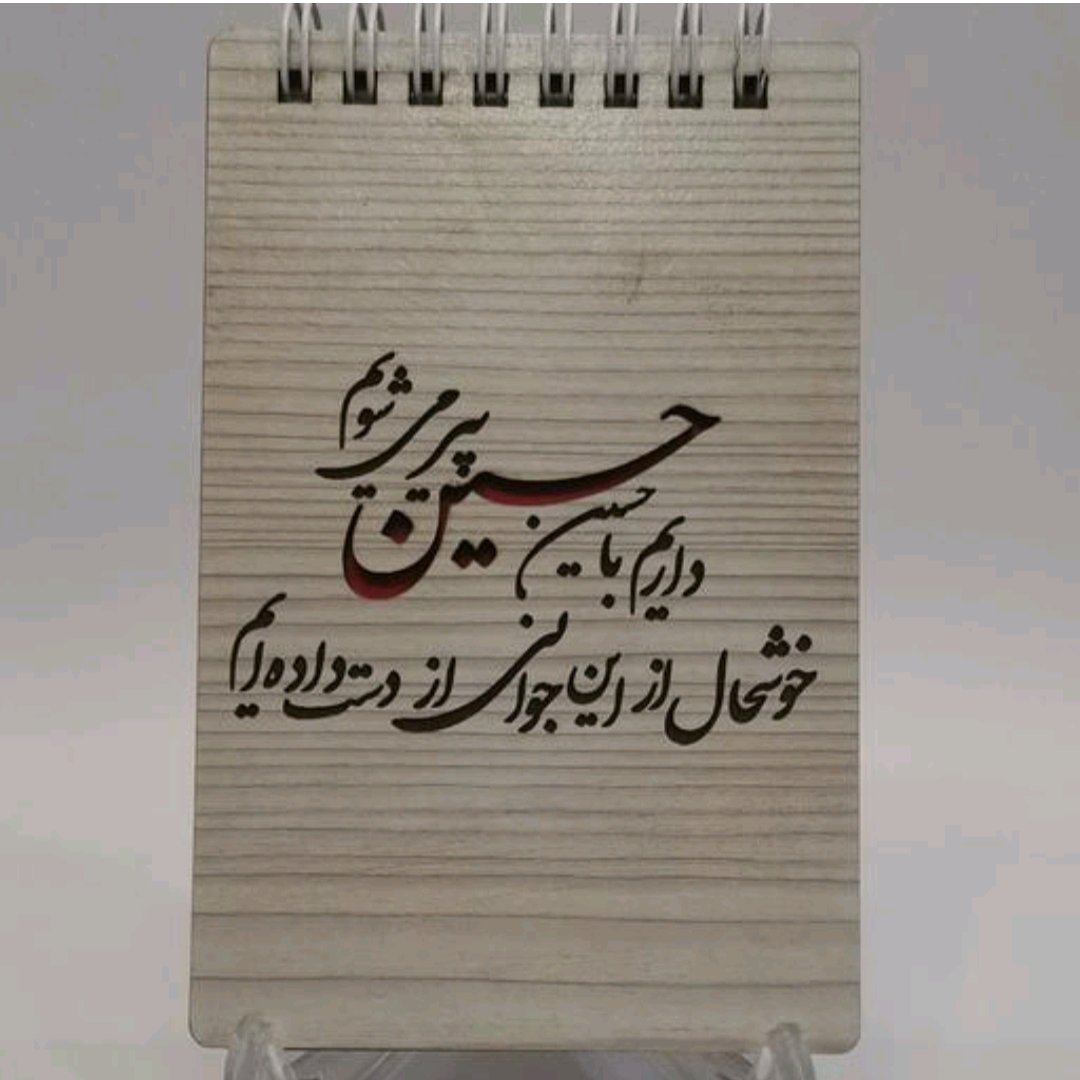 داریم با حسین
حسین پیر می شویم
خوشحال از این جوانی از دست داده ایم